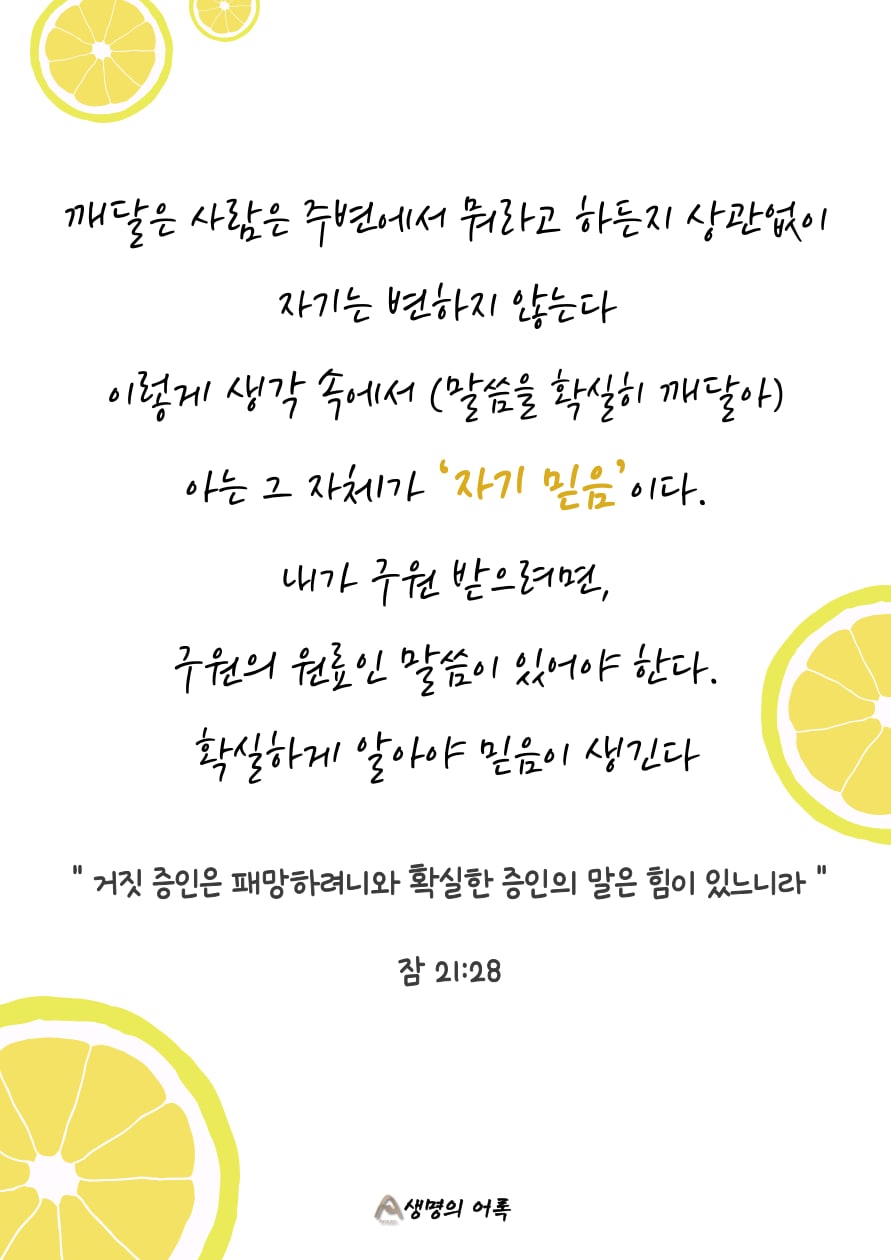 깨달은 사람은 주변에서 뭐라고 하든지 상관없이
자기는 변하지 않는다
이렇게 생각 속에서 (말씀을 확실히 깨달아)
아는 그 자체가 ‘자기 믿음’이다.
내가 구원 받으려면,
구원의 원료인 말씀이 있어야 한다.
확실하게 알아야 믿음이 생긴다
" 거짓 증인은 패망하려니와 확실한 증인의 말은 힘이 있느니라 "
잠 21:28
생명의 어록